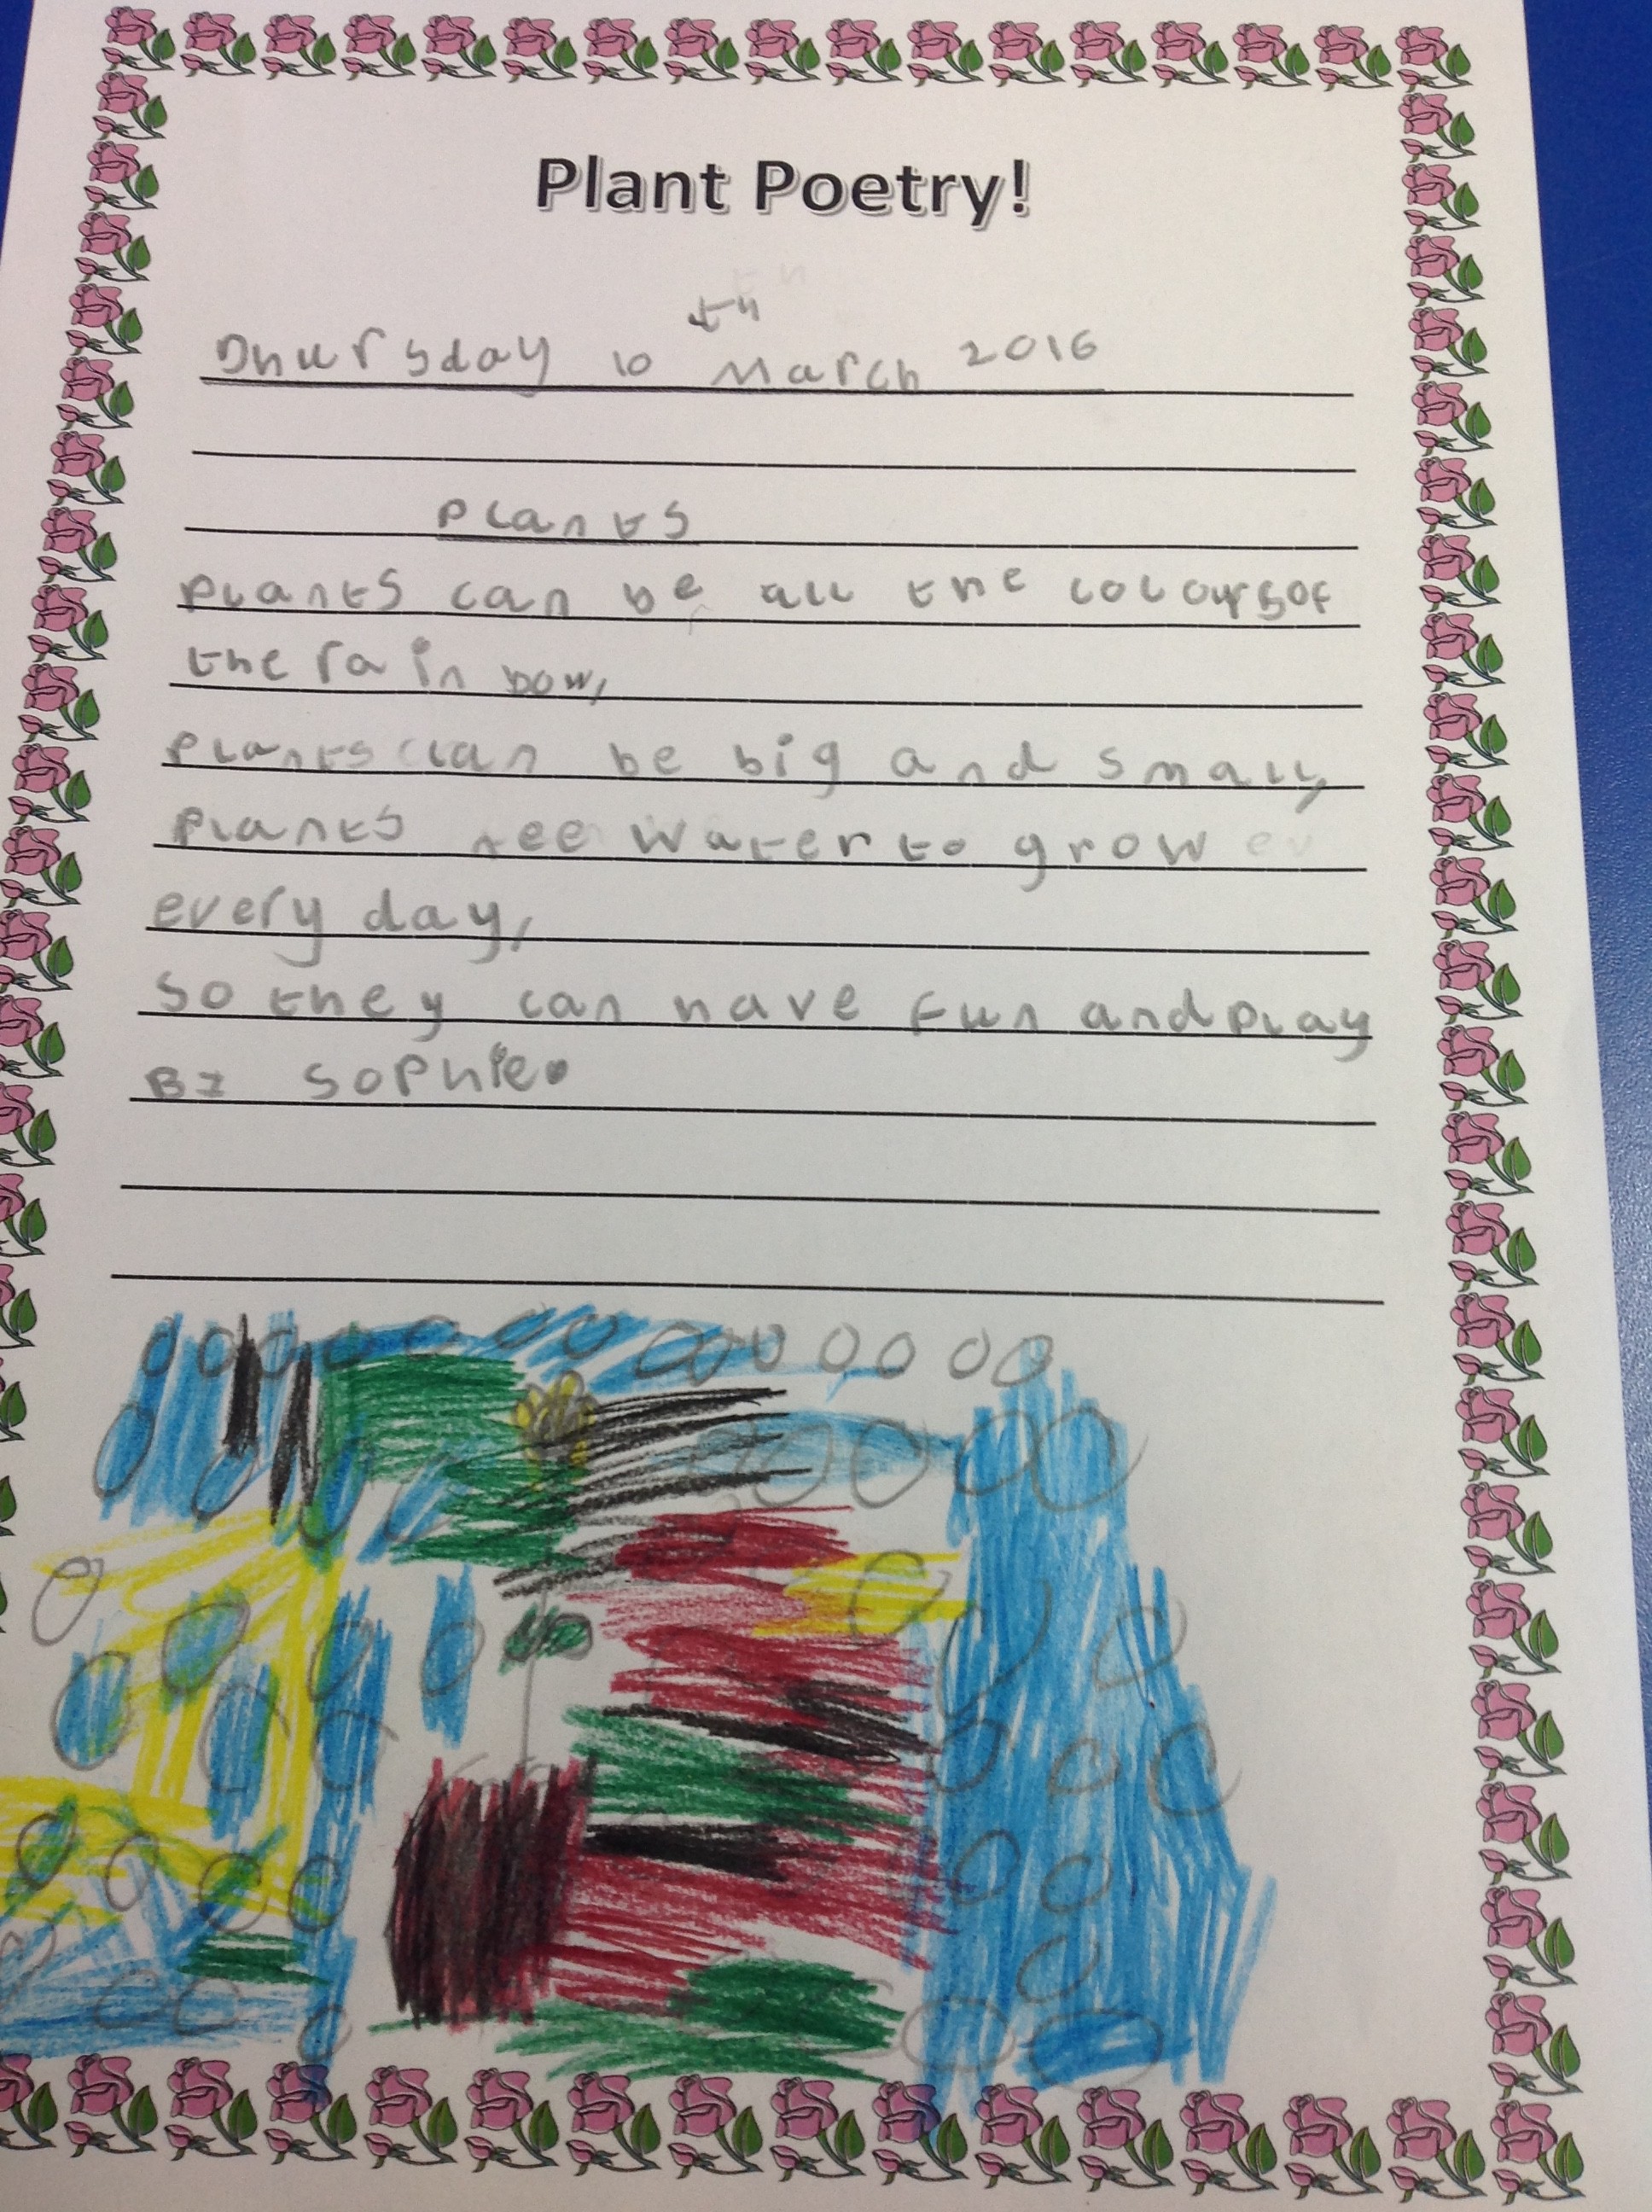 Plant Poetry!
th
Thursday 10 March 2016
Plants
Plants can be all the colours of
the rain bow,
Plants can be big and small,
Plants nee water to grow
every day,
so they can have fun and play
By Sophie.